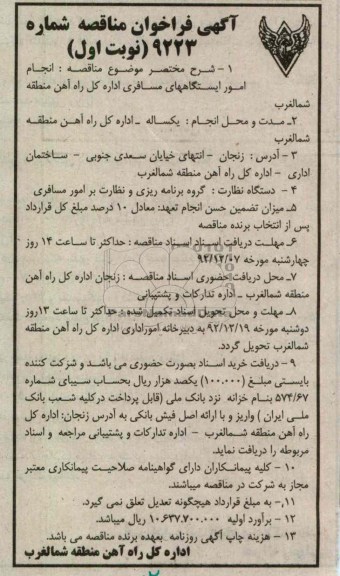 آگهی فراخوان مناقصه شماره
۹۲۲۳ (نوبت اول)
۱ - شرح مختصر موضوع مناقصه : انجام
امور ایستگاههای مسافری اداره کل راه آهن منطقه
شمالغرب
۲ـ مدت و محل انجام : یکساله ـ اداره کل راه آهن منطقه
شمالغرب
۳ - آدرس : زنجان - انتهای خیابان سعدی جنوبی - ساختمان
اداری - اداره کل راه آهن منطقه شمالغرب
۴ - دستگاه نظارت : گروه برنامه ریزی و نظارت بر امور مسافری
۵ـ میزان تضمین حسن انجام تعهد: معادل ۱۰ درصد مبلغ کل قرارداد
پس از انتخاب برنده مناقصه
۶ـ مهلت دریافت اسناد اسناد مناقصه : حداکثر تا ساعت ۱۴ روز
چهارشنبه مورخه ۹۲/۱۲/۰۷
۷ـ محل دریافت حضوری اسناد مناقصه : زنجان اداره کل راه آهن
منطقه شمالغرب ـ اداره تدارکات و پشتیبانی
۸ـ مهلت و محل تحویل اسناد تکمیل شده : حداکثر تا ساعت ۱۳ روز
دوشنبه مورخه ۹۲/۱۲/۱۹ به دبیرخانه اموراداری اداره کل راه آهن منطقه
شمالغرب تحویل گردد.
۹ - دریافت خرید اسناد بصورت حضوری می باشد و شرکت کننده
بایستی مبلغ (۱۰۰.۰۰۰) یکصد هزار ریال بحساب سیبای شماره
۵۷۴/۶۷ بنام خزانه نزد بانک ملی (قابل پرداخت درکلیه شعب بانک
ملی ایران ) واریز و با ارائه اصل فیش بانکی به آدرس زنجان: اداره کل
راه آهن منطقه شمالغرب - اداره تدارکات و پشتیبانی مراجعه و اسناد
مربوطه را دریافت نماید.
۱۰ - کلیه پیمانکاران دارای گواهینامه صلاحیت پیمانکاری معتبر
مجاز به شرکت در مناقصه میباشند.
۱۱ـ به مبلغ قرارداد هیچگونه تعدیل تعلق نمی گیرد.
۱۲ - برآورد اولیه ۱۰.۶۳۷.۷۰۰.۰۰۰ ریال میباشد.
۱۳ - هزینه چاپ آگهی روزنامه بعهده برنده مناقصه می باشد.
اداره کل راه آهن منطقه شمالغرب